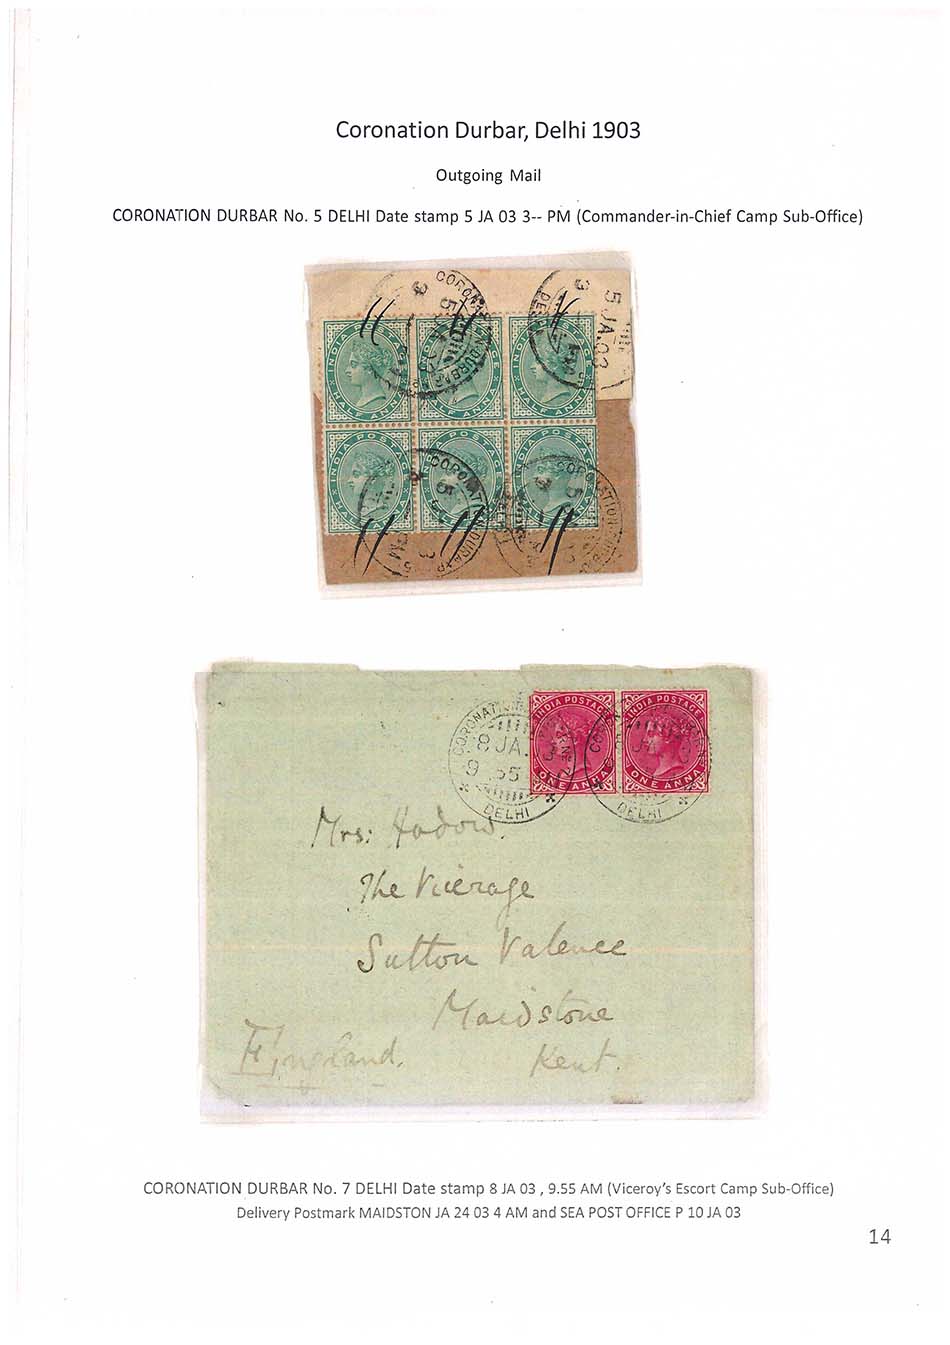 Coronation Durbar, Delhi 1903
Outgoing Mail
CORONATION DURBAR No. 5 DELHI Date stamp 5 JA 03 3-- PM (Commander-in-Chief Camp Sub-Office)
CORONATION DURBAR
5 JA.03
INDIA POSTAGE
HALF ANNA
INDIA POSTAGE
HALF ANNA
INDIA POSTAGE
HALF ANNA
INDIA POSTAGE
INDIA POSTAGE
INDIA POSTAGE
CORONATION DURBAR
CORONATION
INDIA POSTAGE
ONE ANNA
INDIA POSTAGE
ONE ANNA
8 JA.
DELHI
DELHI
Mrs: Hadow.
The Vicerage
Sutton Valence
Maidstone
Kent.
England.
CORONATION DURBAR No. 7 DELHI Date stamp 8 JA 03 , 9.55 AM (Viceroy's Escort Camp Sub-Office)
Delivery Postmark MAIDSTON JA 24 03 4 AM and SEA POST OFFICE P 10 JA 03
14